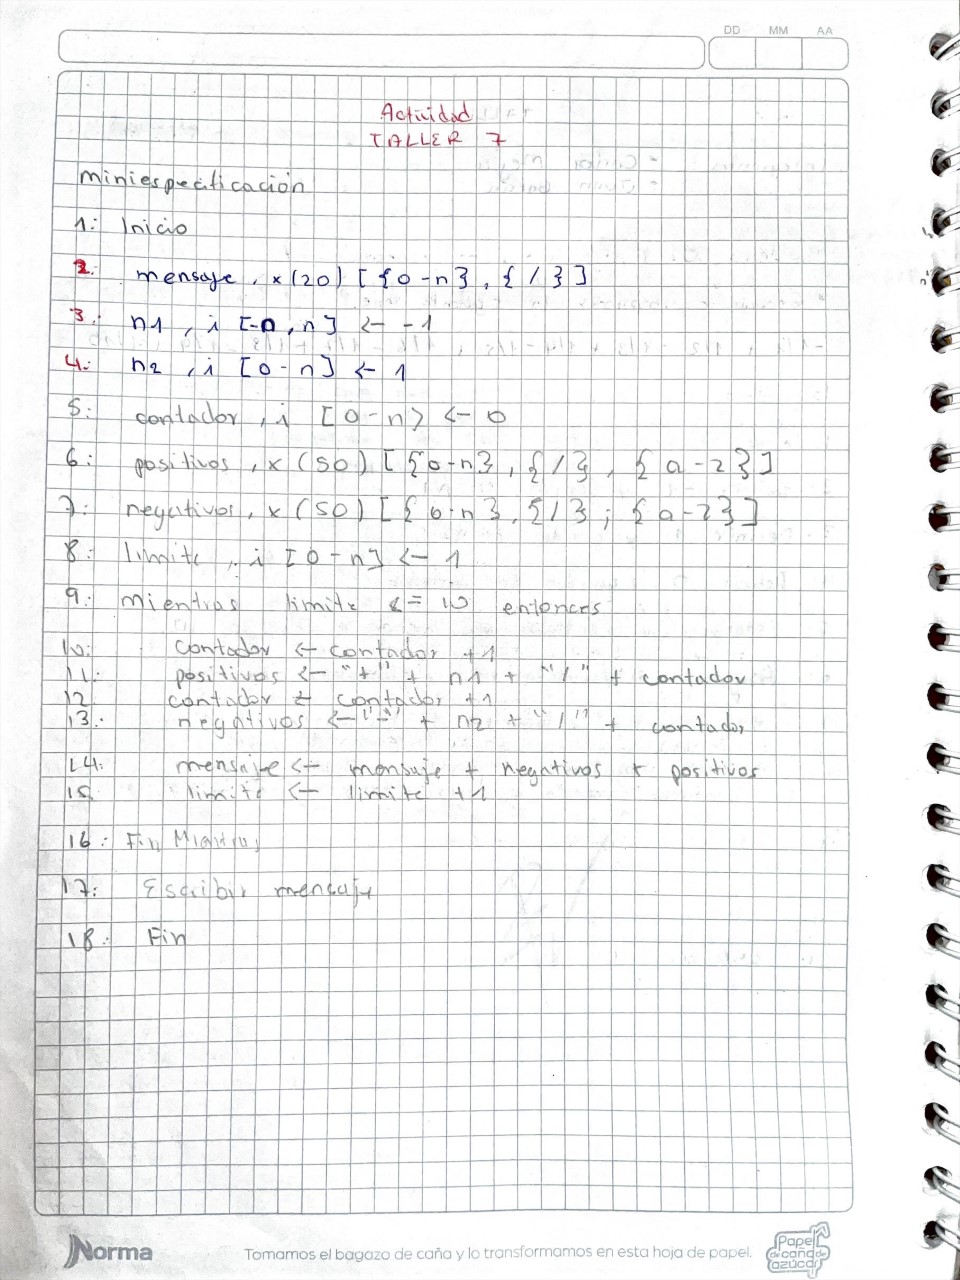 DD MM AA
Actividad
TALLER 7
miniespecificación
1: Inicio
2. mensaje, x(20) [{0-n}, {/}]
3. n1, i [-n, n] <- -1
4. n2, i [0-n] <- 1
5: contador, i [0-n} <- 0
6: positivos, x(50) [{0-n}, {/}, {a-z}]
7: negativos, x(50) [{0-n}, {/}; {a-z}]
8: limite, i [0-n] <- 1
9: mientras limite <= 10 entonces
10: contador <- contador +1
11: positivos <- "+" + n1 + "/" + contador
12 contador <- contador +1
13: negativos <- "-" + n2 + "/" + contador
14: mensaje <- mensaje + negativos + positivos
15 limite <- limite +1
16: Fin Mientras
17: Escribir mensaje
18: Fin
Norma
Tomamos el bagazo de caña y lo transformamos en esta hoja de papel.
Papel
de caña de
azúcar